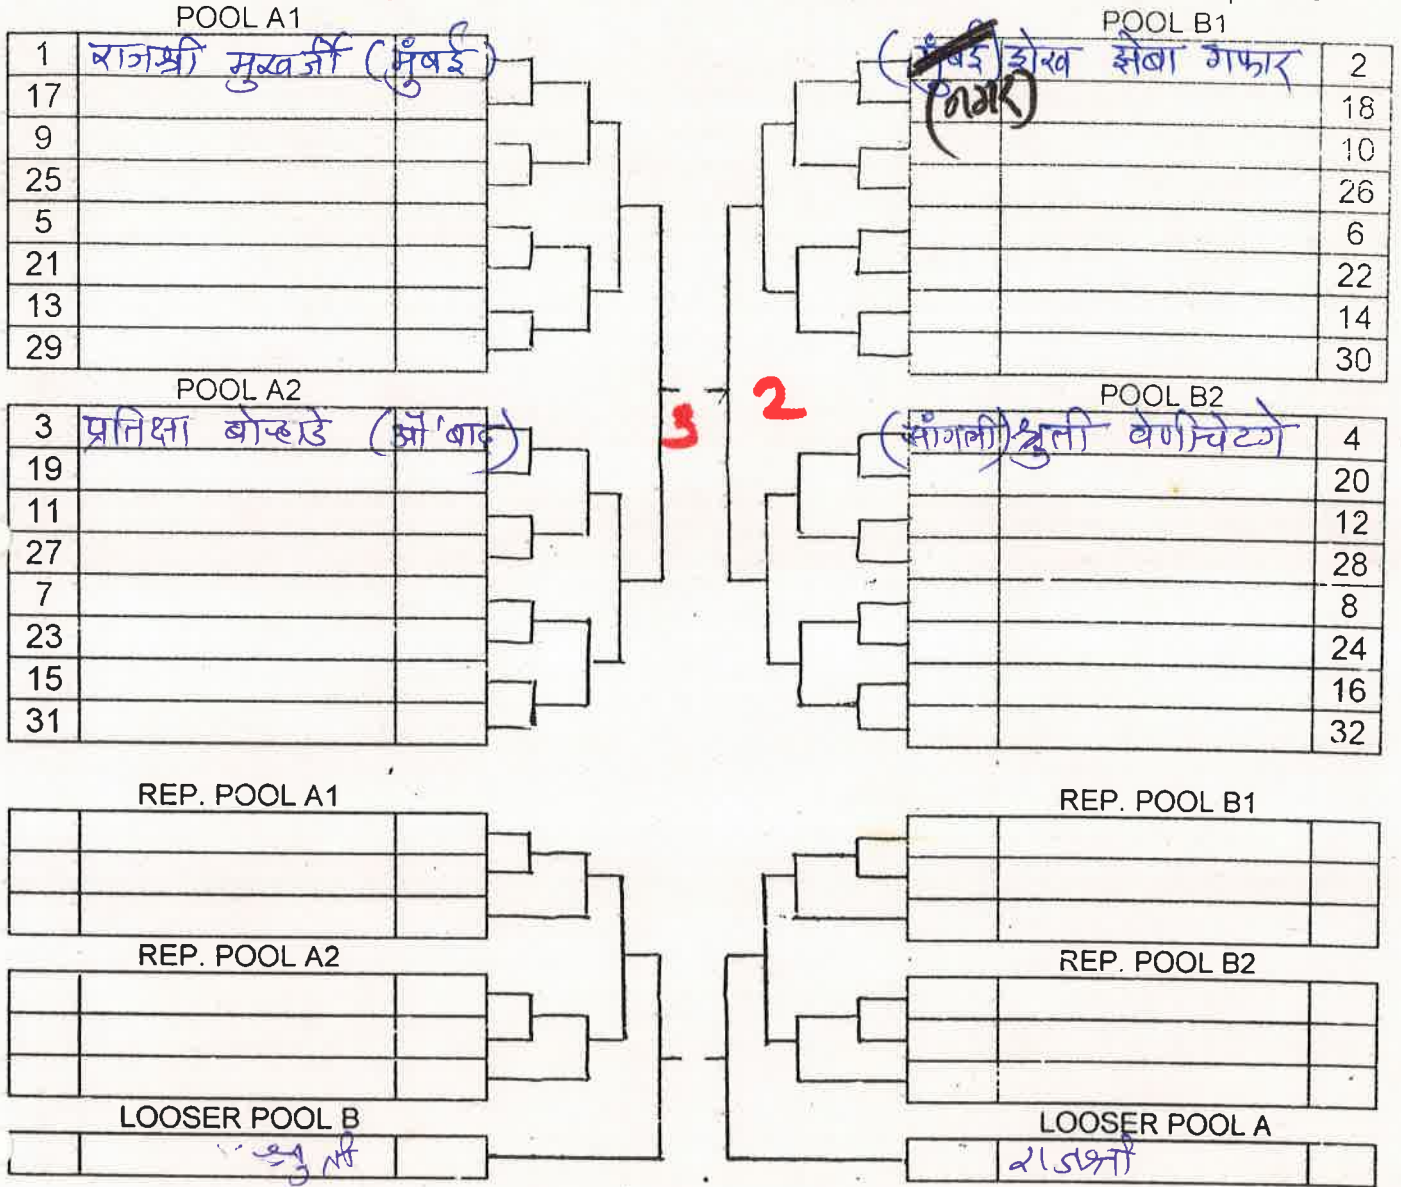 POOL A1
1 राजश्री मुखर्जी (मुंबई)
17
9
25
5
21
13
29
POOL A2
3 प्रतिक्षा बोऱ्हाडे (औ'बाद)
19
11
27
7
23
15
31
3
2
POOL B1
(मुंबई) शेख झेबा गफार 2
(नगर) 18
10
26
6
22
14
30
POOL B2
(सांगली) श्रुती 4
20
12
28
8
24
16
32
REP. POOL A1
REP. POOL A2
LOOSER POOL B
श्रुती
REP. POOL B1
REP. POOL B2
LOOSER POOL A
राजश्री